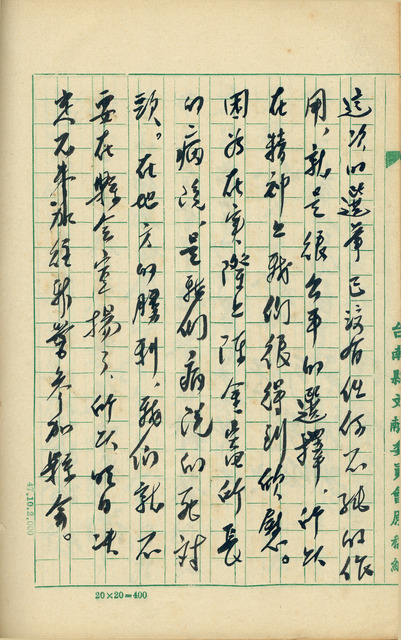 這次的選舉已沒有任何不純的作
用，就是很公平的選擇，所以
在精神上我們很得到欣慰。
因為在實際上陳金龍所長
的病院，是我們病院的死對
頭。在地方的勝利，我們就不
要在縣會宣揚了，所以明日決
定不參加往新營參加縣會。
台南縣文獻委員會原稿紙
47.10.2,000
20×20=400